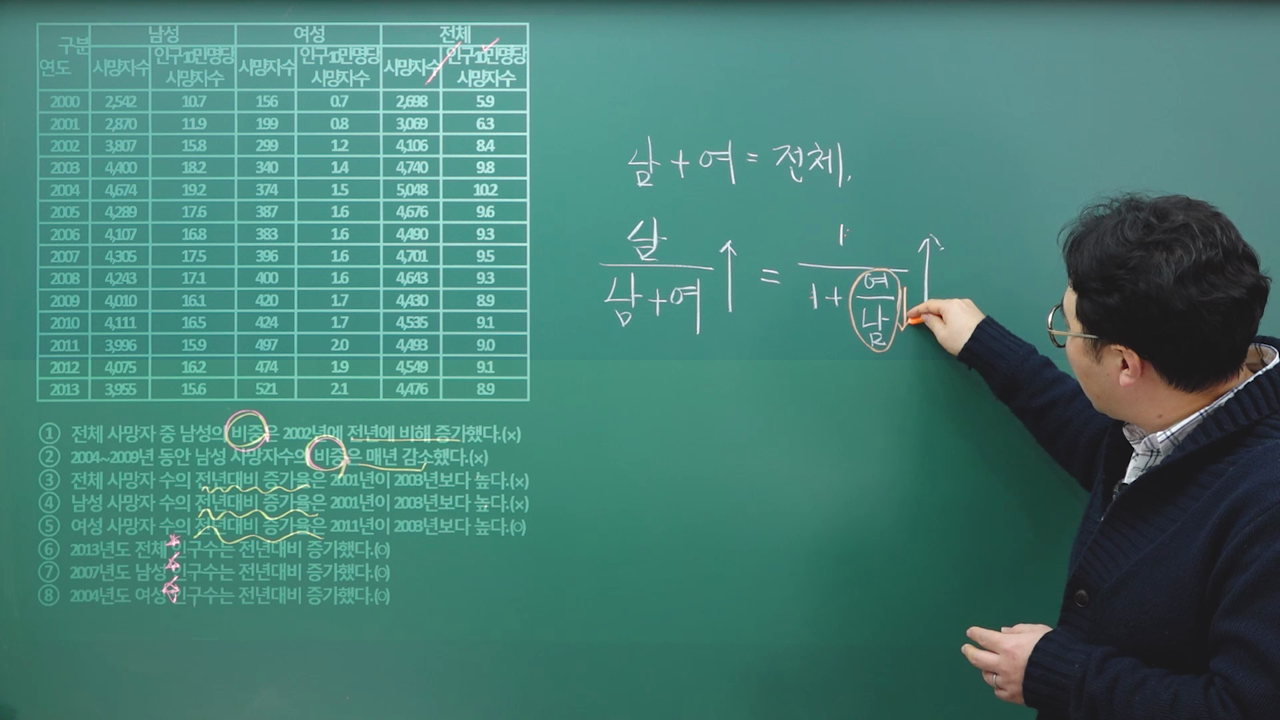 구분 남성 여성 전체
연도 사망자수 인구10만명당 사망자수 사망자수 인구10만명당 사망자수 사망자수 인구10만명당 사망자수
2000 2,542 10.7 156 0.7 2,698 5.9
2001 2,870 11.9 199 0.8 3,069 6.3
2002 3,807 15.8 299 1.2 4,106 8.4
2003 4,400 18.2 340 1.4 4,740 9.8
2004 4,674 19.2 374 1.5 5,048 10.2
2005 4,289 17.6 387 1.6 4,676 9.6
2006 4,107 16.8 383 1.6 4,490 9.3
2007 4,305 17.5 396 1.6 4,701 9.5
2008 4,243 17.1 400 1.6 4,643 9.3
2009 4,010 16.1 420 1.7 4,430 8.9
2010 4,111 16.5 424 1.7 4,535 9.1
2011 3,996 15.9 497 2.0 4,493 9.0
2012 4,075 16.2 474 1.9 4,549 9.1
2013 3,955 15.6 521 2.1 4,476 8.9
① 전체 사망자 중 남성의 비중은 2002년에 전년에 비해 증가했다.(×)
② 2004~2009년 동안 남성 사망자수의 비중은 매년 감소했다.(×)
③ 전체 사망자 수의 전년대비 증가율은 2001년이 2003년보다 높다.(×)
④ 남성 사망자 수의 전년대비 증가율은 2001년이 2003년보다 높다.(×)
⑤ 여성 사망자 수의 전년대비 증가율은 2011년이 2003년보다 높다.(○)
⑥ 2013년도 전체 인구수는 전년대비 증가했다.(○)
⑦ 2007년도 남성 인구수는 전년대비 증가했다.(○)
⑧ 2004년도 여성 인구수는 전년대비 증가했다.(○)
남+여=전체.
남 1
↑ = ↑
남+여 1+ 여
남